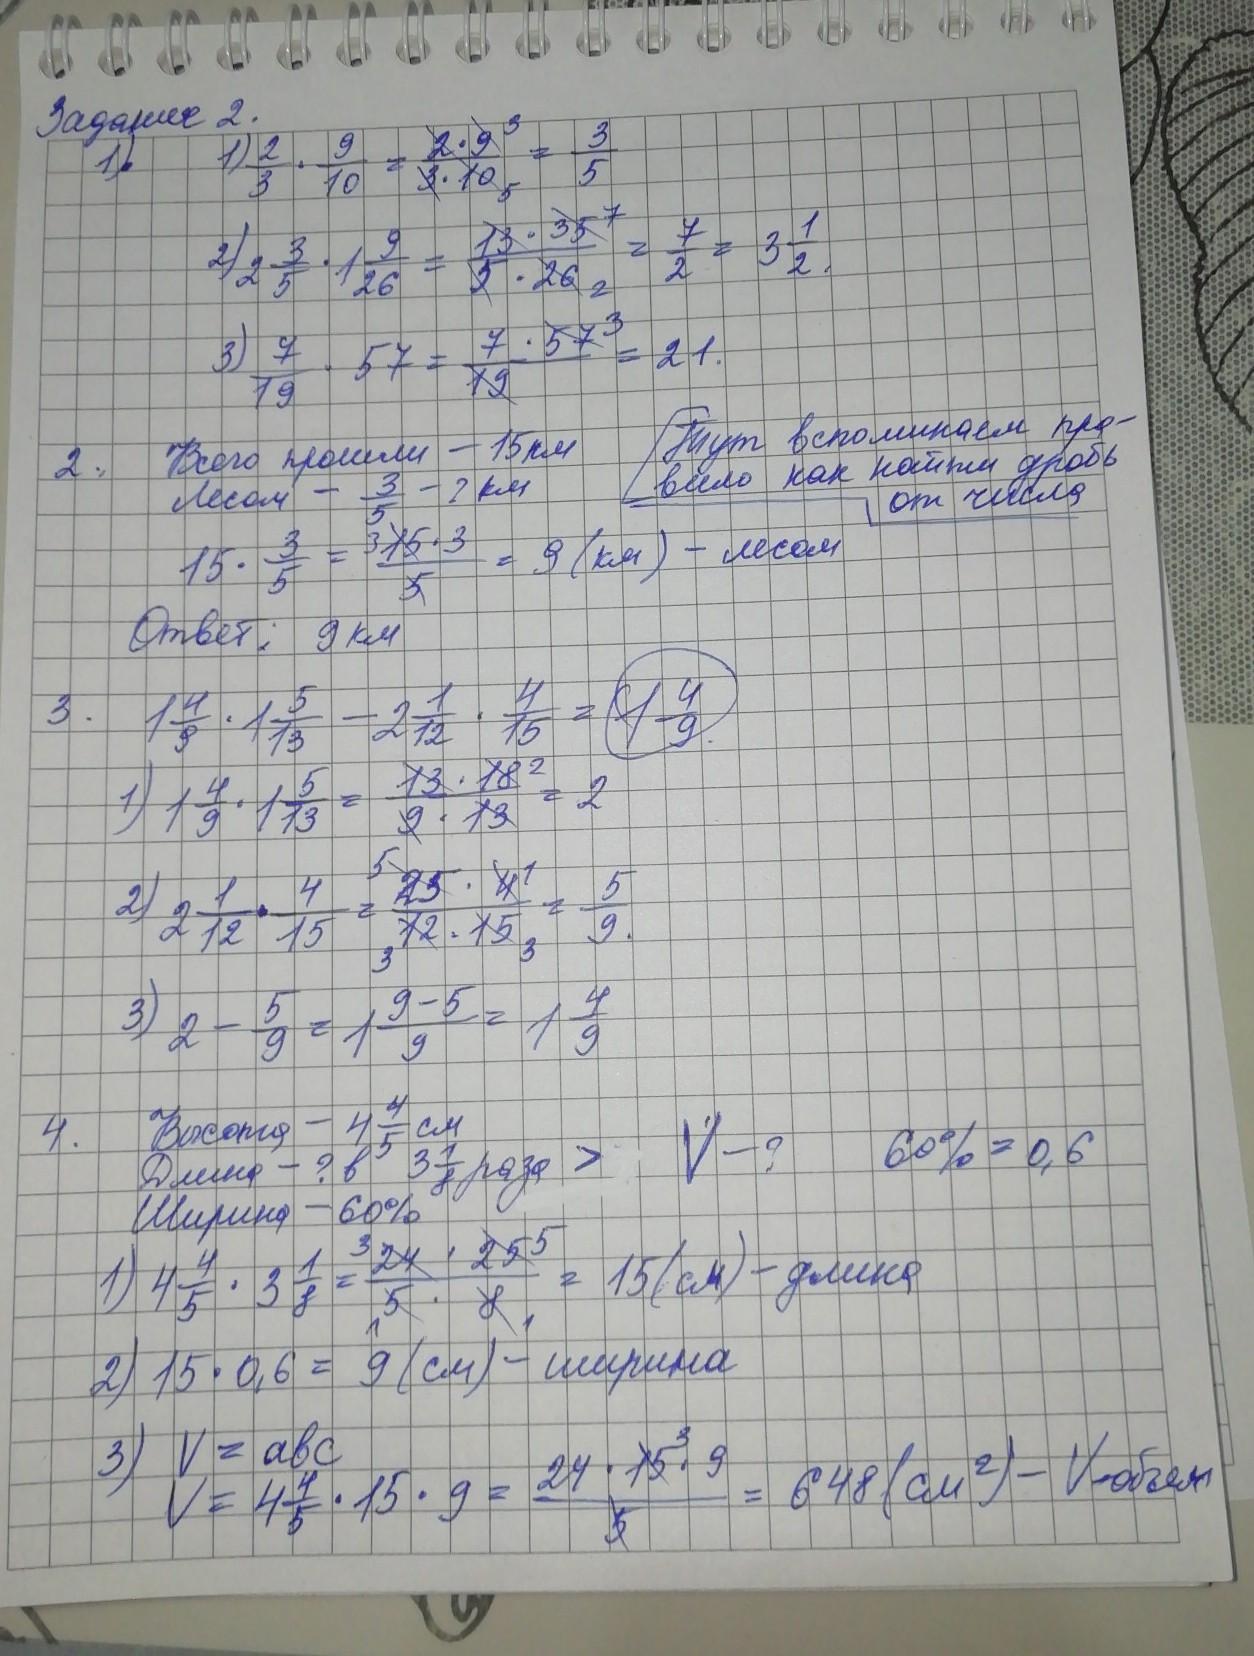 Задание 2.
1) 1) 2/3 · 9/10 = 2·9 3/3·10 5 = 3/5
2) 2 3/5 · 1 9/26 = 13·35 7/5·26 2 = 7/2 = 3 1/2.
3) 7/19 · 57 = 7·57 3/19 = 21.
2. Всего прошли – 15 км
Лесом – 3/5 – ? км
Тут вспоминаем пра-
вило как найти дробь
от числа
15 · 3/5 = 3 15·3/5 = 9 (км) – лесом
Ответ: 9 км
3. 1 4/9 · 1 5/13 – 2 1/12 · 4/15 = 1 4/9.
1) 1 4/9 · 1 5/13 = 13·18 2/9·13 = 2
2) 2 1/12 · 4/15 = 5 25·4 1/3 12·15 3 = 5/9.
3) 2 – 5/9 = 1 9–5/9 = 1 4/9
4. Высота – 4 4/5 см
Длина – ? в 3 1/8 раза > V – ? 60% = 0,6
Ширина – 60%
1) 4 4/5 · 3 1/8 = 3 24·25 5/5 1·8 1 = 15 (см) – длина
2) 15 · 0,6 = 9 (см) – ширина
3) V = abc
V = 4 4/5 · 15 · 9 = 24·15 3·9/5 = 648 (см²) – V–объем